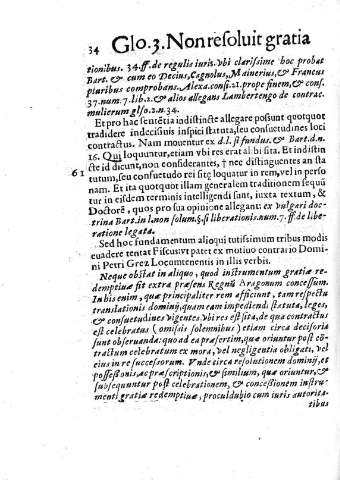 34 Glo.3. Non resoluit gratia
tionibus. 34.ff.de regulis iuris.vbi clarissime hoc probat
Bart. & cum eo Decius, Cagnolus, Mainerius, & Francus
pluribus comprobans. Alexa.consi.21.prope finem, & cons.
37.num.7.lib.2.& alios allegans Lambertengo de contrac.
mulierum glso.2.n.34.
Et pro hac sententia indistincte allegare possunt quotquot
tradidere in decisiuis inspici statuta, seu consuetudines loci
contractus. Nam mouentur ex.d.l. si fundus. & Bart.d.n.
16. Qui loquuntur, etiam vbi res erat alibi sita. Et indistin
cte id dicunt, non considerantes, † nec distinguentes an sta
61 tutum, seu consuetudo rei sitę loquatur in rem, vel in perso
nam. Et ita quotquot illam generalem traditionem sequũ
tur in eisdem terminis intelligendi sunt, tanquam textus, &
Doctorẽ, quos pro sua opinione allegant: ex vulgari doc-
trina Bart. in l.non solum.§.si liberationis.num.7. ff.de libe-
ratione legata.
Sed hoc fundamentum alioqui tutissimum tribus modis
euadere tentat Fiscus: vt patet ex motiuo contrario Domi-
ni Petri Grez Locumtenentis in illis verbis.
Neque obstat in aliquo, quod instrumentum gratiæ re-
demptiuæ fit extra præsens Regnũ Aragonum concessum.
In bis enim, quæ principaliter rem afficiunt, tam respectu
translationis dominij, quam eius impediendi, statuta, leges,
& consuetudines vigentes vbi res est sita, de qua contractus
est celebratus (omissis solemnibus) etiam circa decisoria
sunt obseruanda: quo ad ea præsertim, quæ oriuntur post cõ-
tractum celebratum ex mora, vel negligentia obligati, vel
eius in re successorum. Vnde circa resolutionem dominij, et
possessionis, ac præscriptionis, & similium, quæ oriuntur, &
subsequuntur post celebrationem, & concessionem instru-
menti gratiæ redemptiuæ, proculdubio cum iuris autorita-
tibus